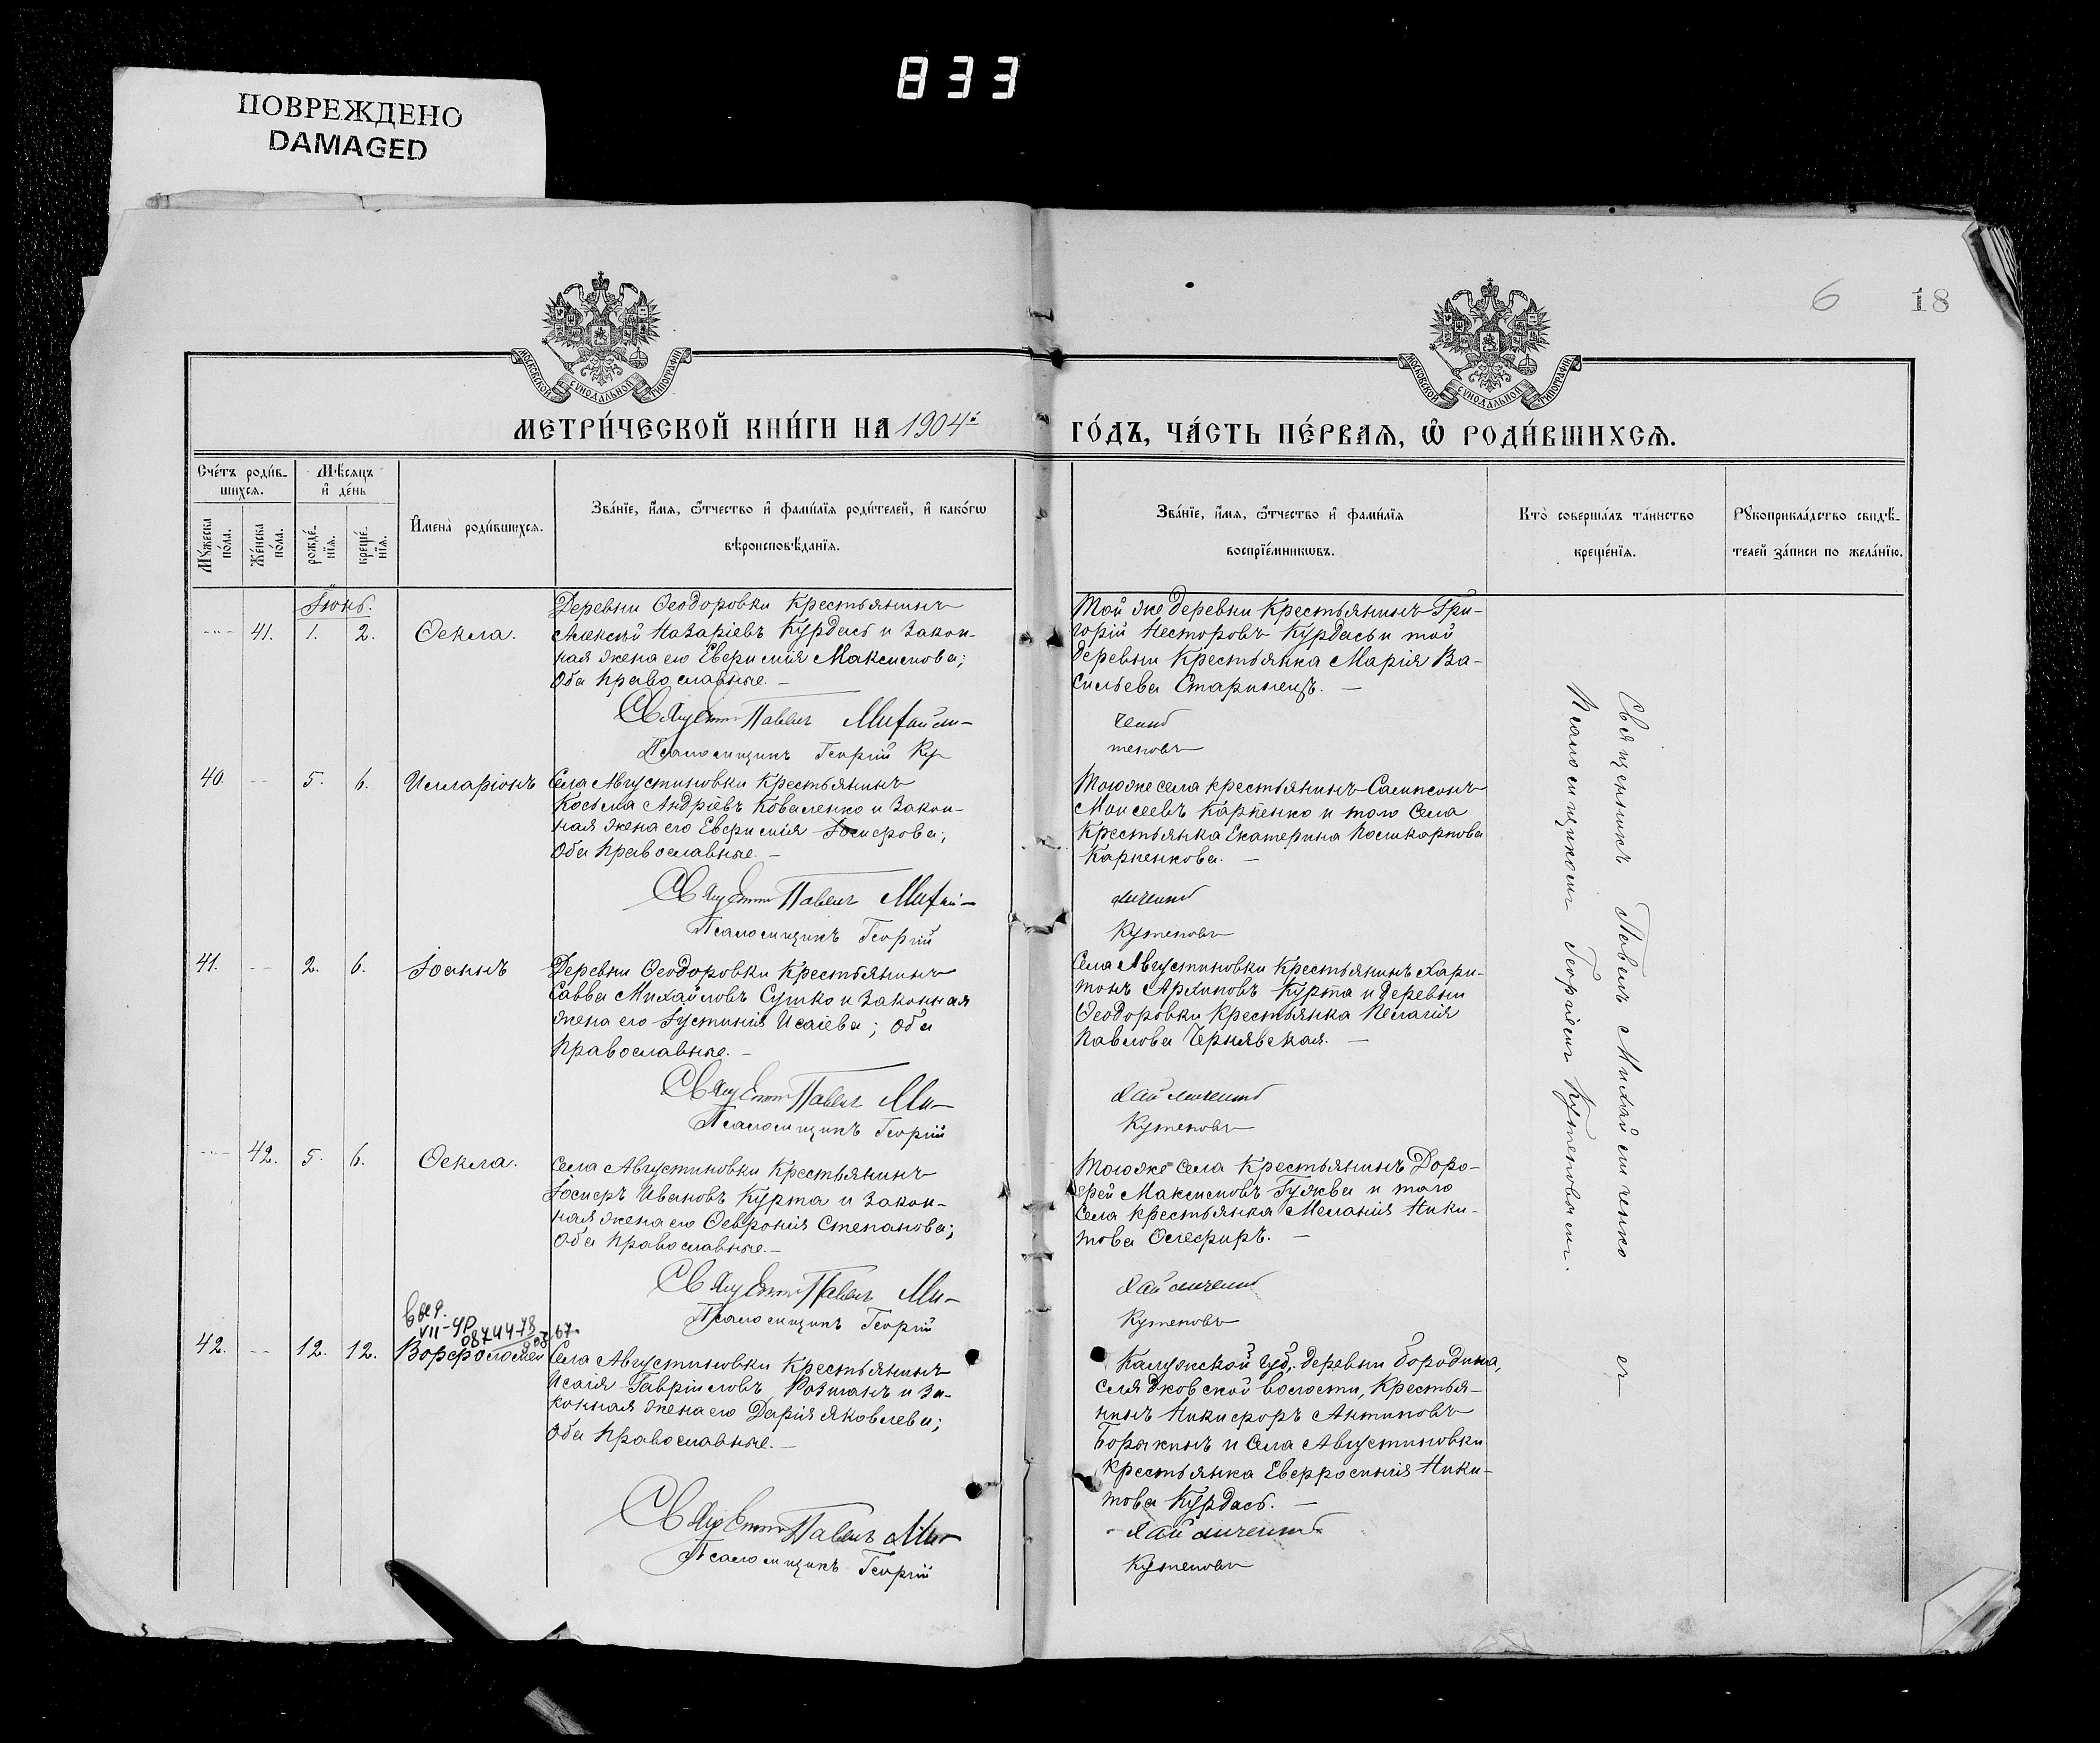 833
ПОВРЕЖДЕНО
DAMAGED
6
18
МОСКОВСКОЙ СѴНОДАЛЬНОЙ ТИПОГРАФІИ
МОСКОВСКОЙ СѴНОДАЛЬНОЙ ТИПОГРАФІИ
МЕТРИ́ЧЕСКОЙ КНИ́ГИ НА 1904й
ГО́ДЪ, ЧА́СТЬ ПЕ́РВАѦ, Ѽ РОДИ́ВШИХСѦ.
Сче́тъ роди́в-
шихсѧ.
Мѣ́сѧцъ
и҆ де́нь
Мꙋ́жеска по́ла.
Же́нска по́ла.
рожде́-
нїѧ.
креще́-
нїѧ.
И҆мена̀ роди́вшихсѧ.
Зва́нїе, и҆́мѧ, ѻ҆́тчество и҆ фами́лїѧ роди́телей, и҆ како́гѡ
вѣроисповѣ́данїѧ.
Зва́нїе, и҆́мѧ, ѻ҆́тчество и҆ фами́лїѧ
воспрїе́мникѡвъ.
Кто̀ соверша́лъ та́инство
креще́нїѧ.
Рꙋкоприкла́дство свидѣ́-
телей за́писи по жела́нїю.
Іюнь.
41. 1. 2. Ѳекла.
Деревни Ѳеодоровки крестьянинъ
Алексѣй Назаріевъ Курдасъ и закон-
ная жена его Евфимія Максимова;
оба православные. –
Священникъ Павелъ Михайли-
Псаломщикъ Георгій Ку
Той же деревни крестьянинъ Гри-
горій Несторовъ Курдасъ и той
деревни крестьянка Марія Ва-
сильева Старинецъ. –
ченко
теповъ
40 5. 6. Илларіонъ
Села Августиновки крестьянинъ
Косьма Андріевъ Коваленко и закон-
ная жена его Евфимія Іосифова;
оба православные. –
Священникъ Павелъ Михай-
Псаломщикъ Георгій
Того же села крестьянинъ Сампсонъ
Моисеевъ Карпенко и того села
крестьянка Екатерина Поликарпова
Карпенкова. –
личенко
Кутеповъ
41. 2. 6. Іоаннъ
Деревни Ѳеодоровки крестьянинъ
Савва Михайловъ Сушко и законная
жена его Іустинія Исаіева; оба
православные. –
Священникъ Павелъ Ми-
Псаломщикъ Георгій
Села Августиновки крестьянинъ Хари-
тонъ Архиповъ Курта и деревни
Ѳеодоровки крестьянка Пелагія
Павлова Чернявская. –
хайличенко
Кутеповъ
42. 5. 6. Ѳекла.
Села Августиновки крестьянинъ
Іосифъ Ивановъ Курта и закон-
ная жена его Ѳевронія Степанова;
оба православные. –
Священникъ Павелъ Ми-
Псаломщикъ Георгій
Того же села крестьянинъ Доро-
фей Максимовъ Гужва и того
села крестьянка Меланія Ники-
това Олефиръ. –
хайличенко
Кутеповъ
42. 12. 12. Ворфоломей
Села Августиновки крестьянинъ
Исаія Гавріиловъ Ротманъ и за-
конная жена его Дарія Яковлева;
оба православные. –
Священникъ Павелъ Ми-
Псаломщикъ Георгій
Калужской губ. деревни Бородина,
крестья-
нинъ Никифоръ Антиповъ
Борякинъ и села Августиновки
крестьянка Евфросинія Ники-
това Курдасъ. –
хайличенко
Кутеповъ
Священникъ Павелъ Михайличенко съ
Псаломщикомъ Георгіемъ Кутеповымъ.